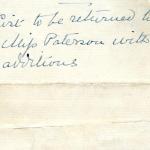 List to be returned to
Miss Paterson with
additions